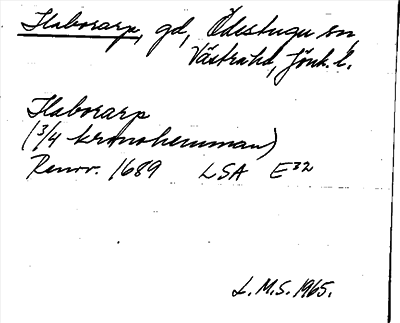 Slaborarp, gd, Ödestugu sn,
Västra hd, Jönk. l.
Slaborarp
(3/4 kronohemman)
Renov. 1689 LSA E32
L.M.S. 1965.